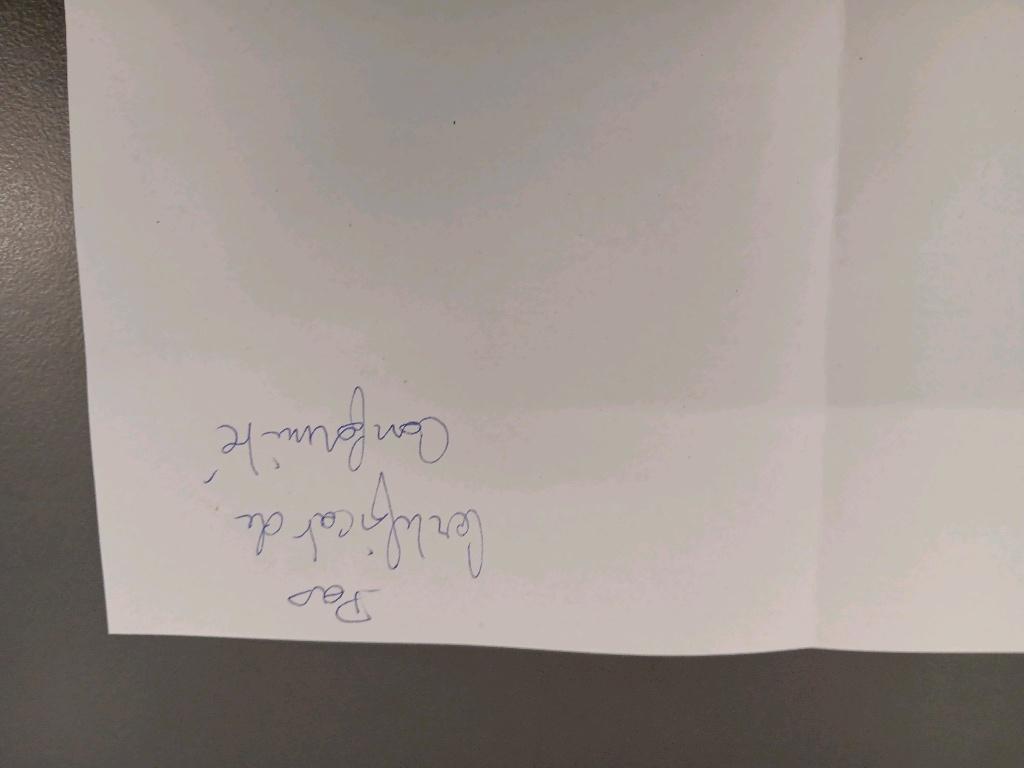 Pas
Certificat de
Conformité